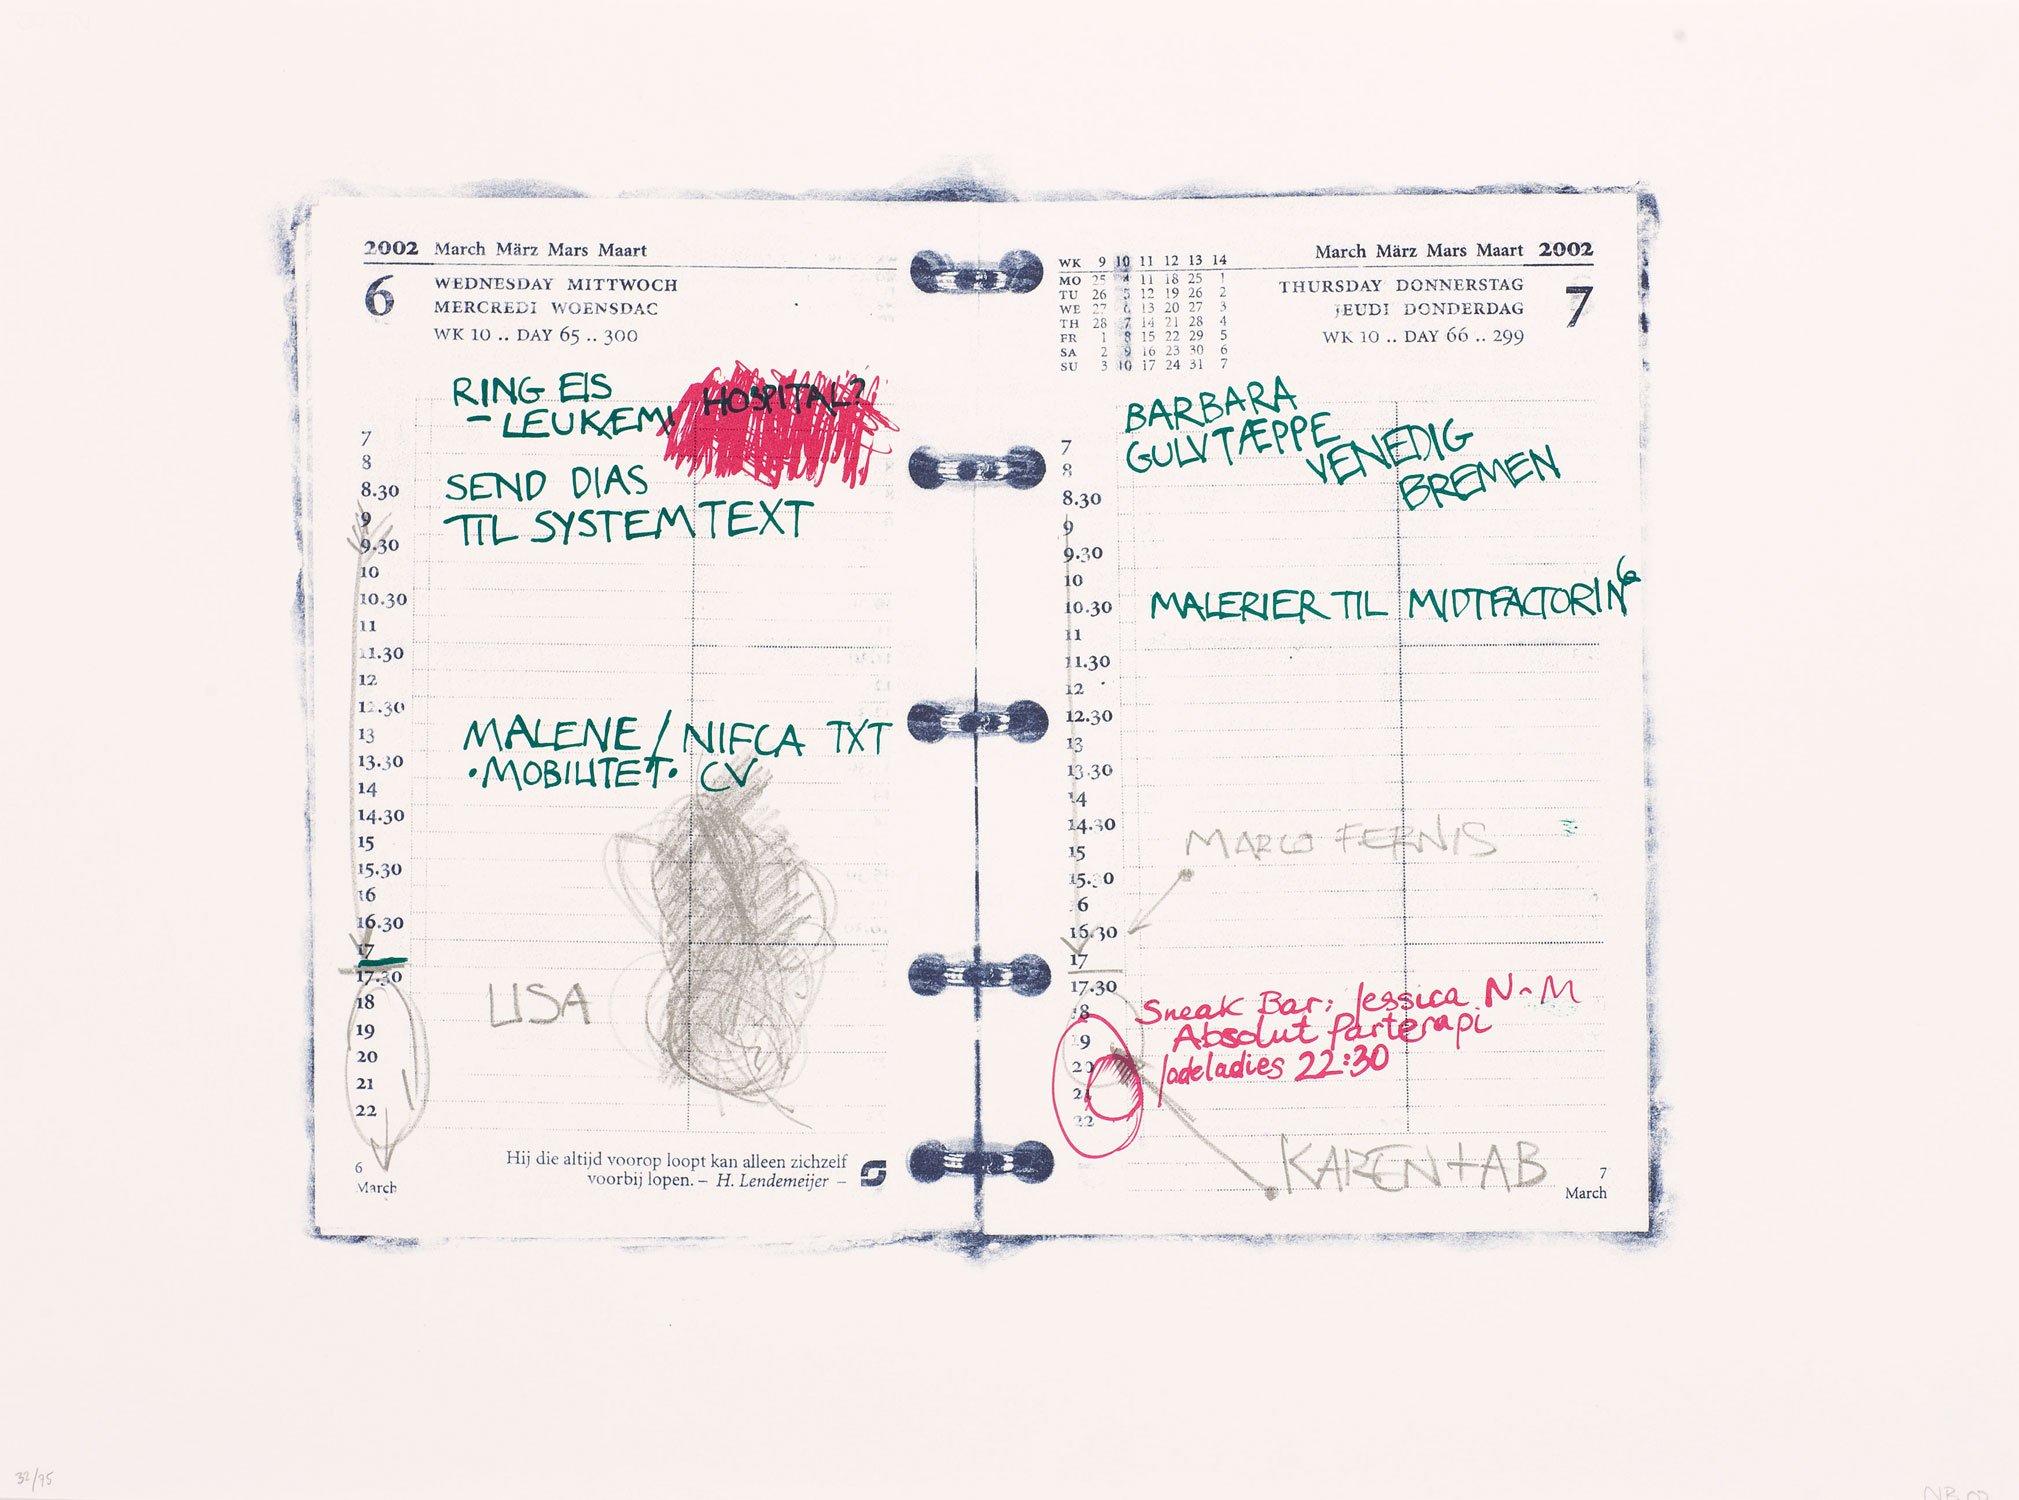 2002 March März Mars Maart
6 WEDNESDAY MITTWOCH
MERCREDI WOENSDAG
WK 10 .. DAY 65 .. 300
RING EIS HOSPITAL?
- LEUKÆMI
SEND DIAS
TIL SYSTEMTEXT
MALENE / NIFCA TXT
·MOBILITET· CV
LISA
7
8
8.30
9
9.30
10
10.30
11
11.30
12
12.30
13
13.30
14
14.30
15
15.30
16
16.30
17
17.30
18
19
20
21
22
6
March
Hij die altijd voorop loopt kan alleen zichzelf
voorbij lopen. – H. Lendemeijer –
March März Mars Maart 2002
THURSDAY DONNERSTAG 7
JEUDI DONDERDAG
WK 10 .. DAY 66 .. 299
WK 9 10 11 12 13 14
MO 25 4 11 18 25 1
TU 26 5 12 19 26 2
WE 27 6 13 20 27 3
TH 28 7 14 21 28 4
FR 1 8 15 22 29 5
SA 2 9 16 23 30 6
SU 3 10 17 24 31 7
BARBARA
GULVTÆPPE VENEDIG
BREMEN
MALERIER TIL MIDTFACTORIN
MARCO FERNIS
Sneak Bar; Jessica N-M
Absolut Parterapi
Jadeladies 22:30
KAREN + AB
7
8
8.30
9
9.30
10
10.30
11
11.30
12
12.30
13
13.30
14
14.30
15
15.30
16
16.30
17
17.30
18
19
20
21
22
7
March
32/75